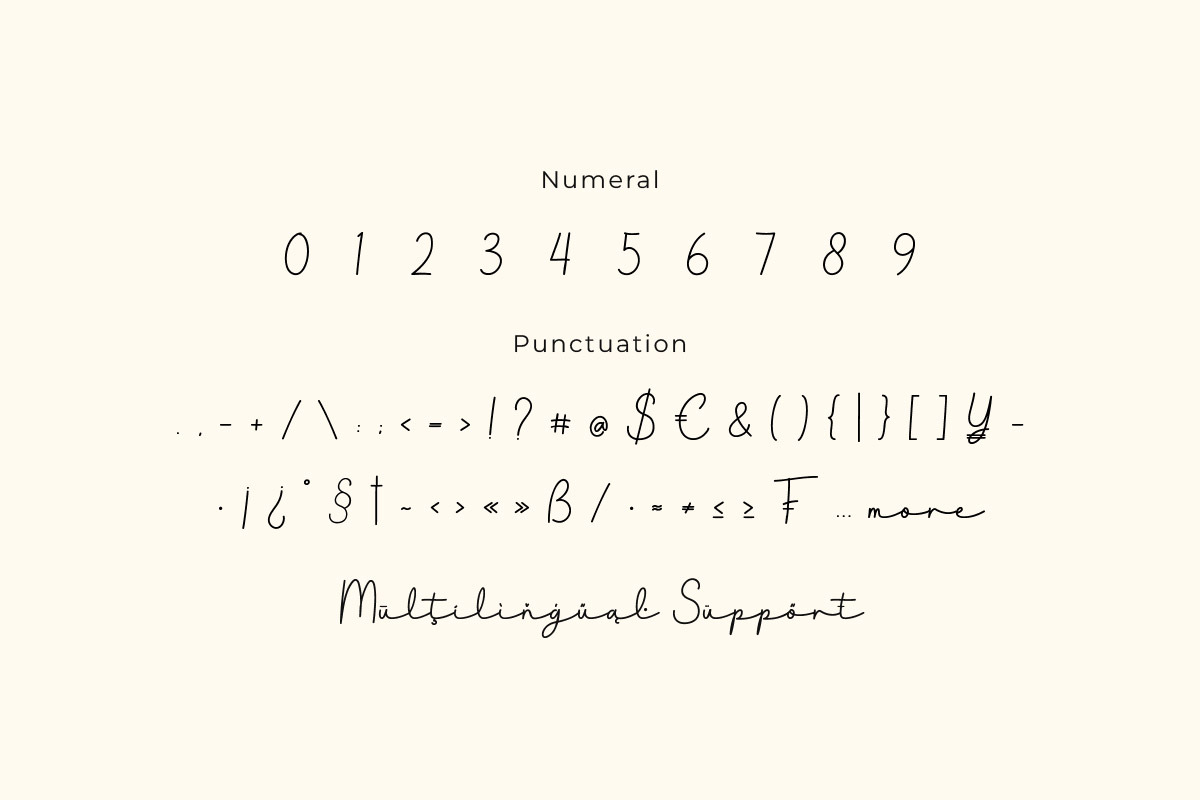 Numeral
0 1 2 3 4 5 6 7 8 9
Punctuation
. , - + / \ : ; < = > ! ? # @ $ € & ( ) { | } [ ] ¥ -
· ¡ ¿ ° § † ~ ‹ › « » ß / · ≈ ≠ ≤ ≥ ₣ ... more
Mūlţiliṅġűąŀ Sūppőrŧ